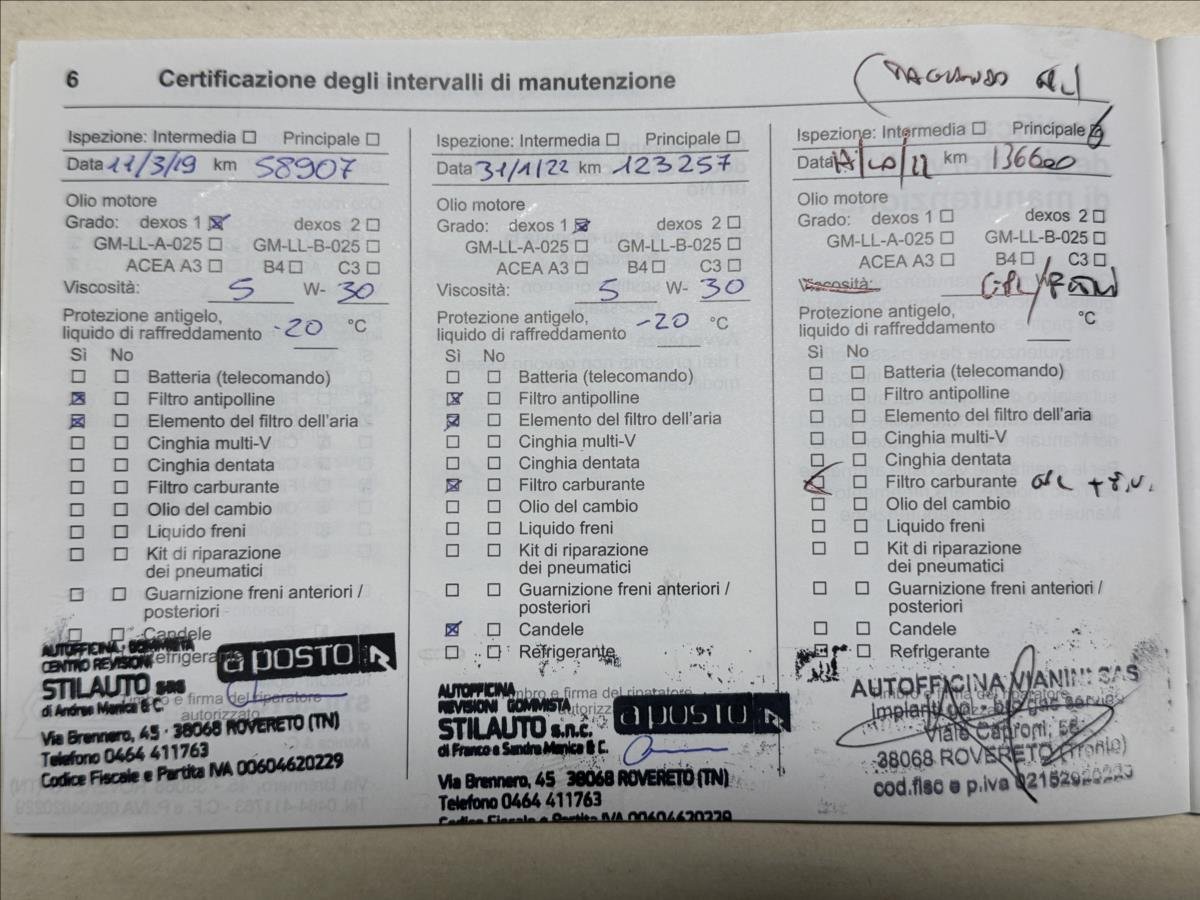 6 Certificazione degli intervalli di manutenzione
TAGLIANDO
Ispezione: Intermedia ☐ Principale ☐
Data 11/3/19 km 58907
Olio motore
Grado: dexos 1 ☒ dexos 2 ☐
GM-LL-A-025 ☐ GM-LL-B-025 ☐
ACEA A3 ☐ B4 ☐ C3 ☐
Viscosità: 5 W- 30
Protezione antigelo,
liquido di raffreddamento -20 °C
Sì No
☐ ☐ Batteria (telecomando)
☒ ☐ Filtro antipolline
☒ ☐ Elemento del filtro dell'aria
☐ ☐ Cinghia multi-V
☐ ☐ Cinghia dentata
☐ ☐ Filtro carburante
☐ ☐ Olio del cambio
☐ ☐ Liquido freni
☐ ☐ Kit di riparazione
dei pneumatici
☐ ☐ Guarnizione freni anteriori /
posteriori
☐ ☐ Candele
Refrigerante
AUTOFFICINA - GOMMISTA
CENTRO REVISIONI
a posto
STILAUTO sas
di Andrea Manica & C.
e firma del riparatore
autorizzato
Via Brennero, 45 - 38068 ROVERETO (TN)
Telefono 0464 411763
Codice Fiscale e Partita IVA 00604620229
Ispezione: Intermedia ☐ Principale ☐
Data 31/1/22 km 123257
Olio motore
Grado: dexos 1 ☒ dexos 2 ☐
GM-LL-A-025 ☐ GM-LL-B-025 ☐
ACEA A3 ☐ B4 ☐ C3 ☐
Viscosità: 5 W- 30
Protezione antigelo,
liquido di raffreddamento -20 °C
Sì No
☐ ☐ Batteria (telecomando)
☒ ☐ Filtro antipolline
☒ ☐ Elemento del filtro dell'aria
☐ ☐ Cinghia multi-V
☐ ☐ Cinghia dentata
☒ ☐ Filtro carburante
☐ ☐ Olio del cambio
☐ ☐ Liquido freni
☐ ☐ Kit di riparazione
dei pneumatici
☐ ☐ Guarnizione freni anteriori /
posteriori
☒ ☐ Candele
☐ ☐ Refrigerante
AUTOFFICINA
REVISIONI GOMMISTA
e firma del riparatore
a posto
STILAUTO s.n.c.
di Franco e Sandro Manica & C.
Via Brennero, 45 38068 ROVERETO (TN)
Telefono 0464 411763
Codice Fiscale e Partita IVA 00604620229
Ispezione: Intermedia ☐ Principale ☒
Data km 136600
Olio motore
Grado: dexos 1 ☐ dexos 2 ☐
GM-LL-A-025 ☐ GM-LL-B-025 ☐
ACEA A3 ☐ B4 ☐ C3 ☐
Viscosità: W-
Protezione antigelo,
liquido di raffreddamento °C
Sì No
☐ ☐ Batteria (telecomando)
☐ ☐ Filtro antipolline
☐ ☐ Elemento del filtro dell'aria
☐ ☐ Cinghia multi-V
☐ ☐ Cinghia dentata
☒ ☐ Filtro carburante
☐ ☐ Olio del cambio
☐ ☐ Liquido freni
☐ ☐ Kit di riparazione
dei pneumatici
☐ ☐ Guarnizione freni anteriori /
posteriori
☐ ☐ Candele
☐ ☐ Refrigerante
AUTOFFICINA VIANINI SAS
Viale Caproni, 58
38068 ROVERETO (Trento)
cod.fisc e p.iva